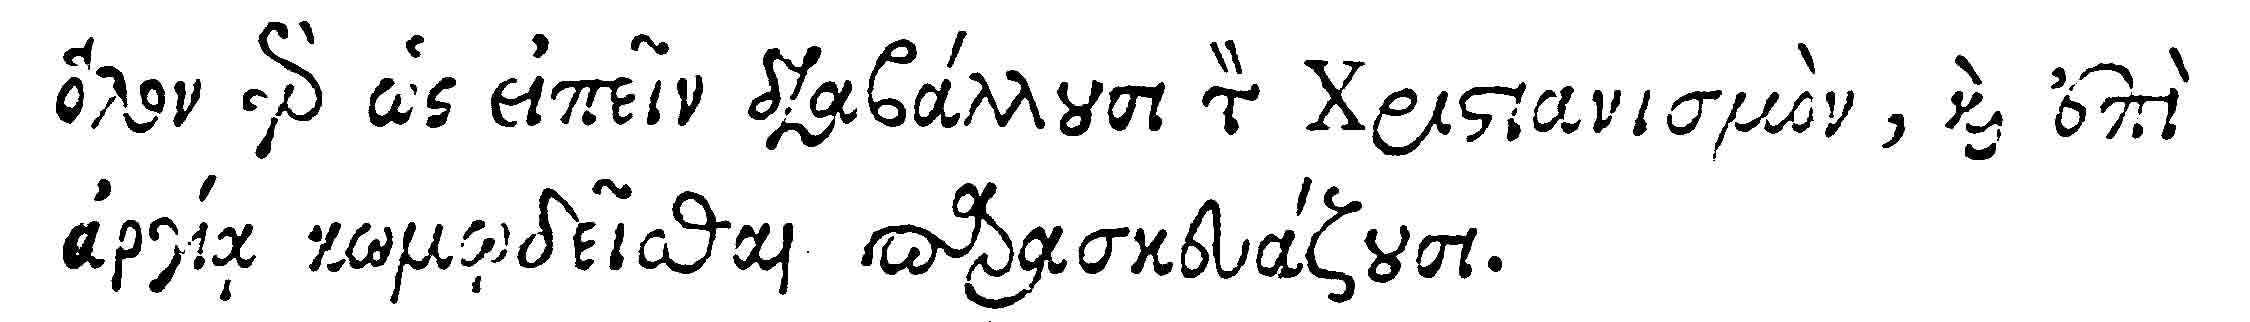 ὅλον γὰρ ὡς εἰπεῖν διαβάλλουσι τὸν Χριστιανισμὸν, καὶ ἐπὶ
ἀργίᾳ κωμῳδεῖσθαι παρασκευάζουσι.